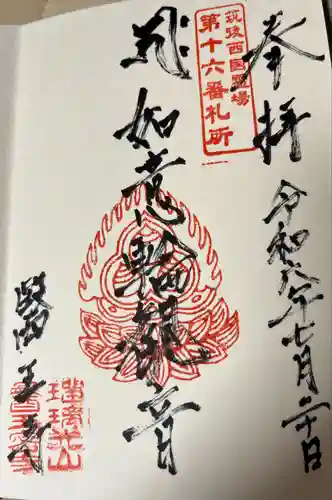 奉拝
令和六年七月二十日
筑後西国霊場
第十六番札所
如意輪観音
醫王寺
瑠璃光山